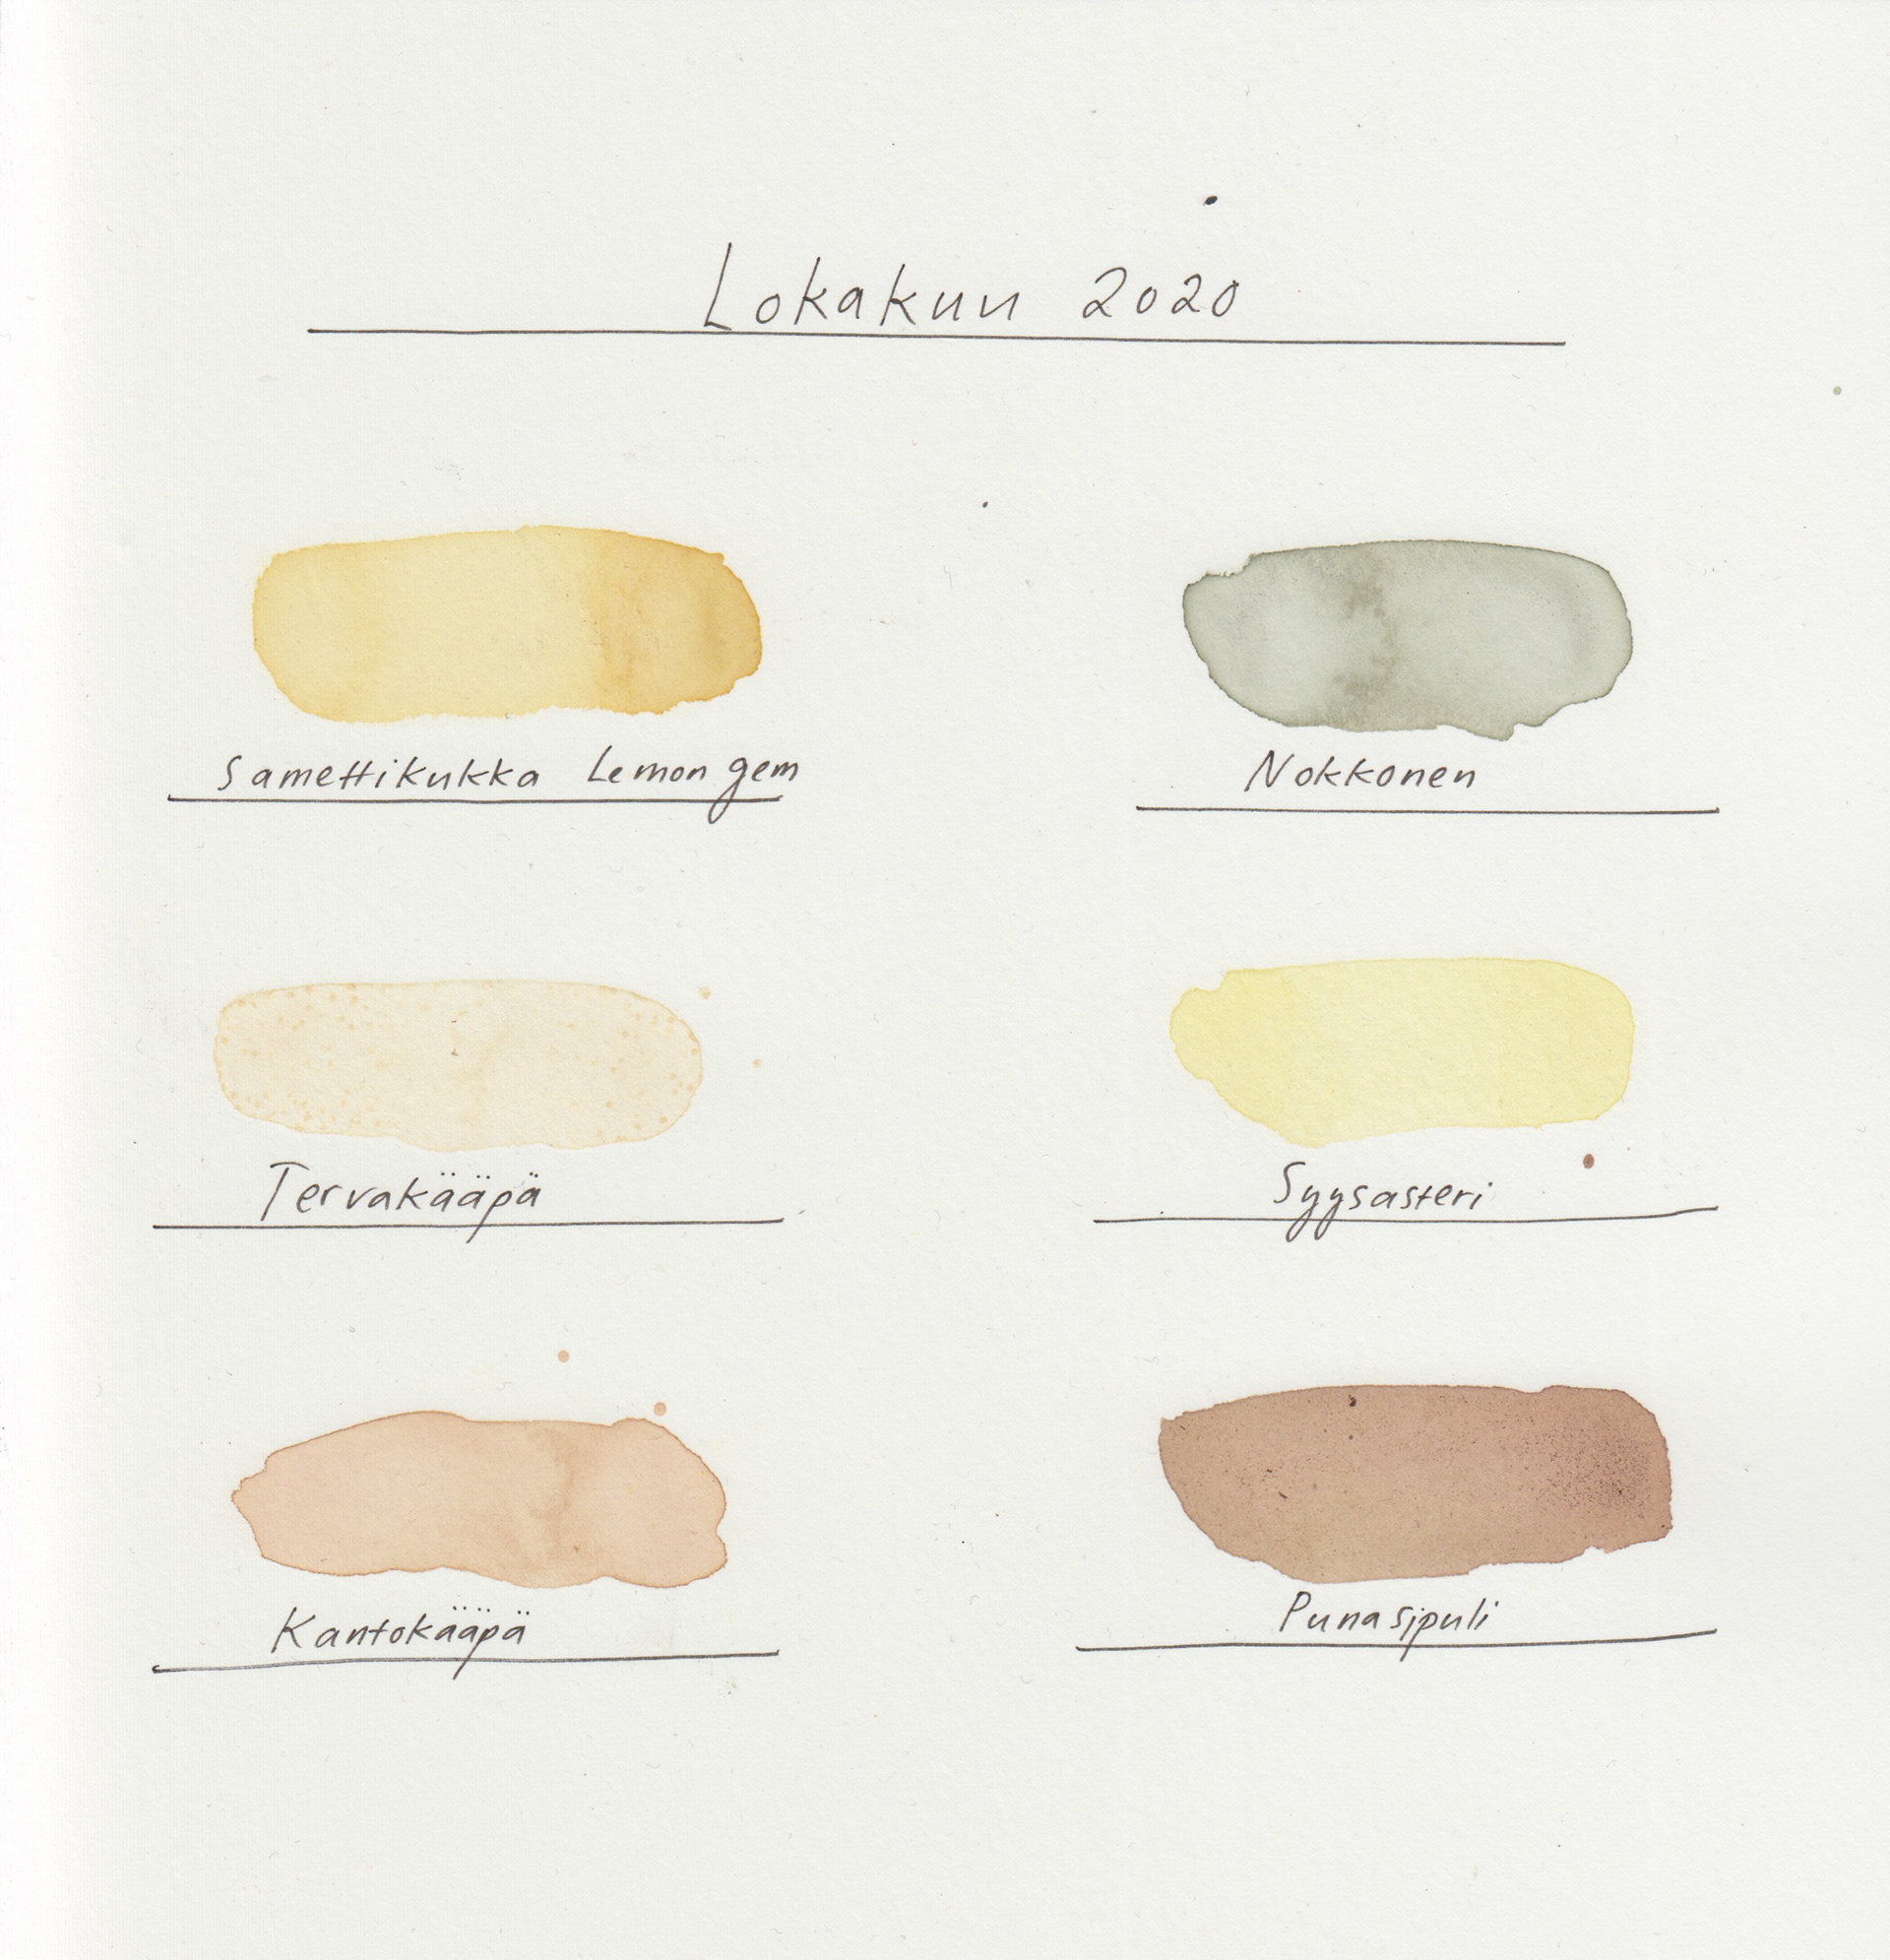 Lokakuu 2020
Samettikukka Lemon gem
Nokkonen
Tervakääpä
Syysasteri
Kantokääpä
Punasipuli